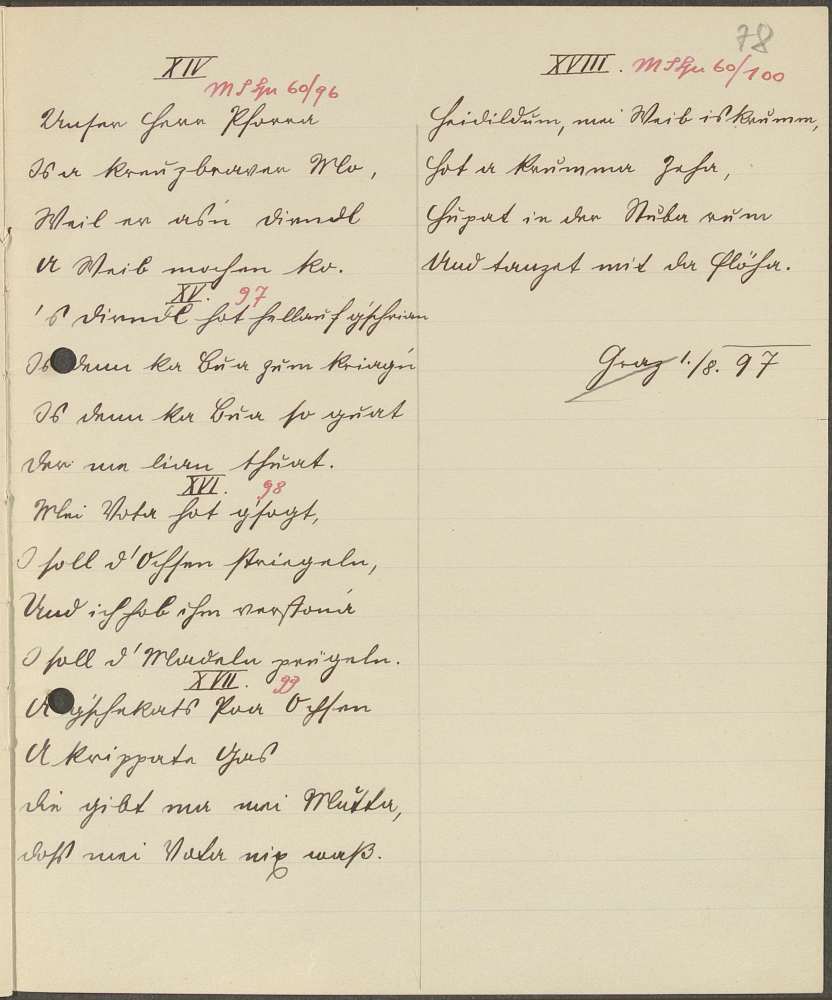 78
XIV
Unser Herr Pforra
Is a kreuzbraver Mo,
Weil er as'n Dirndl
A Weib mochen ko.
XV. 97
's Dirndl hot hellauf g'schrian
Is denn ka Bua zum kriag'n
Is denn ka Bua so guat
Der me lian thuat.
XVI. 98
Mei Vota hot g'sogt,
I soll d'Ochsen striegeln,
Und ich hob ihm verstona
I soll d'Madeln prügeln.
XVII. 99
A g'schekats Poa Ochsen
A krippate Gas
Die gibt ma mei Mutta,
Doß mei Vota nix waß.
XVIII. 60/100
Heidildum, mei Weib is krumm,
Hot a krumma Zeha,
Hupat in der Stuba rum
Und tanzet mit da Flöha.
Graz 1./8. 97